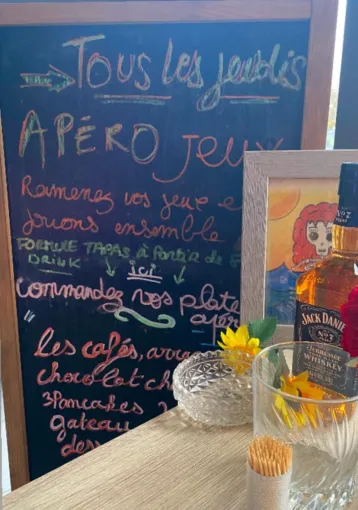 Tous les jeudis
APÉRO Jeux
Ramenez vos jeux e
jouons ensemble
FORMULE TAPAS à Partir de
DRINK
ici
commandez nos plats
apéro
les cafés, arra
chocolat ch
3 Pancakes
gateau
des
JACK DANIE
No.7
Tennessee
WHISKEY